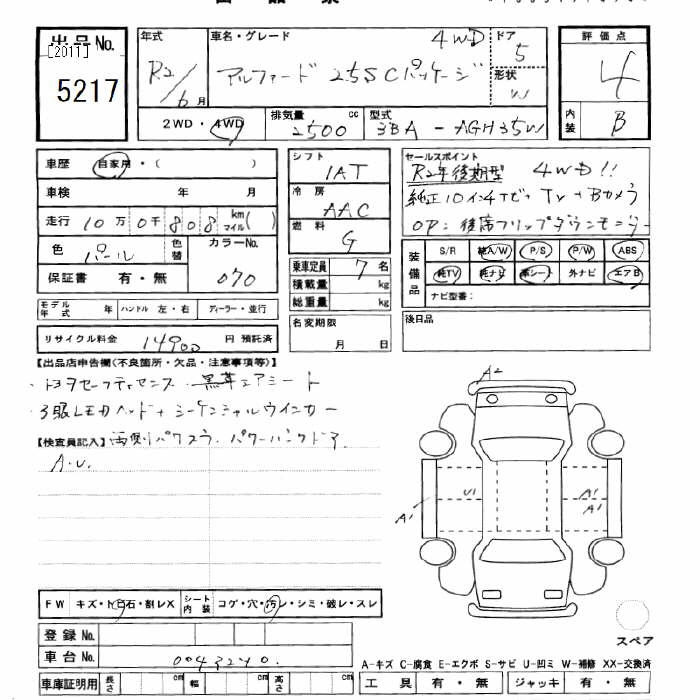 出品No.
[2011]
5217
年式
R2/6月
車名・グレード
4WD
アルファード 25SCパッケージ
ドア
5
形状
W
評価点
4
内装
B
2WD・4WD
排気量
2500 cc
型式
3BA-AGH35W
車歴 自家用・( )
車検 年 月
走行 10万0千808 km マイル( )
色 パール 色替
カラーNo.
070
保証書 有・無
シフト
IAT
冷房
AAC
燃料
G
乗車定員 7名
積載量 kg
総重量 kg
名変期限
月 日
セールスポイント
R2年後期型 4WD!!
純正10インチナビ+TV+Bカメラ
OP:後席フリップダウンモニター
装備品
S/R 純A/W P/S P/W ABS
純TV 純ナビ 革シート 外ナビ エアB
ナビ型番:
後日品
モデル年式 年 ハンドル 左・右 ディーラー・並行
リサイクル料金 14900 円 預託済
【出品店申告欄(不良箇所・欠品・注意事項等)】
・トヨタセーフティセンス・黒革エアシート
・3眼LEDヘッド+シーケンシャルウインカー
【検査員記入】両側パワスラ・パワーバックドア
A.U.
A2
U1
A1
A1
A1
FW キズ・ト・石・割レX シート内装 コゲ・穴・汚レ・シミ・破レ・スレ
登録No.
車台No. 0043240
車庫証明用 長さ cm 幅 cm 高さ cm
スペア
A-キズ C-腐食 E-エクボ S-サビ U-凹ミ W-補修 XX-交換済
工具 有・無 ジャッキ 有・無